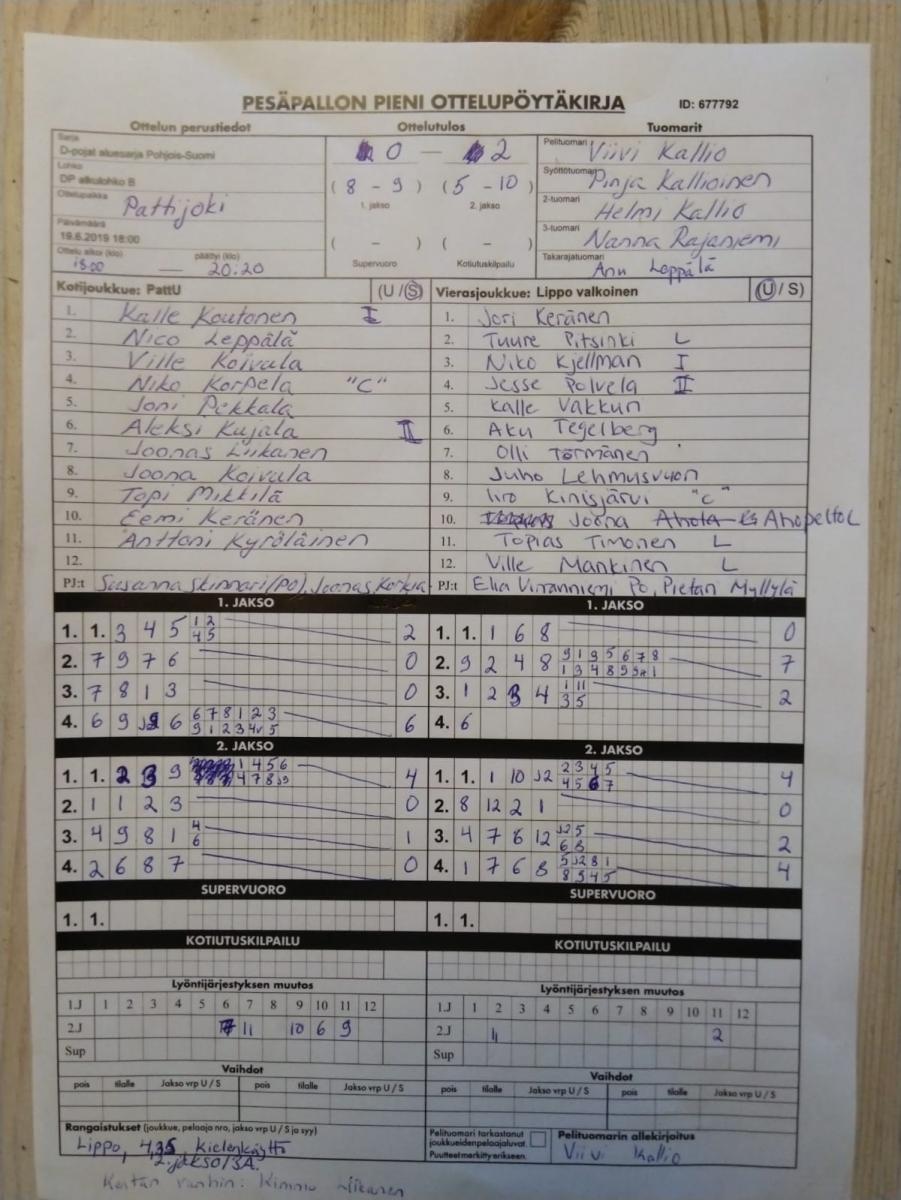 PESÄPALLON PIENI OTTELUPÖYTÄKIRJA ID: 677792
Ottelun perustiedot Ottelutulos Tuomarit
Sarja
D-pojat aluesarja Pohjois-Suomi
Lohko
DP alkulohko B
Ottelupaikka
Pattijoki
Päivämäärä
19.6.2019 18:00
Ottelu alkoi (klo) päättyi (klo)
18:00 — 20:20
0 — 2
( 8 - 9 ) ( 5 - 10 )
1. jakso 2. jakso
( - ) ( - )
Supervuoro Kotiutuskilpailu
Pelituomari Viivi Kallio
Syöttötuomari Pinja Kallioinen
2-tuomari Helmi Kallio
3-tuomari Nanna Rajaniemi
Takarajatuomari Anu Leppälä
Kotijoukkue: PattU (U / S)
1. Kalle Koutonen I
2. Nico Leppälä
3. Ville Koivula
4. Niko Korpela "C"
5. Joni Pekkala
6. Aleksi Kujala II
7. Joonas Liikanen
8. Joona Koivula
9. Topi Mikkilä
10. Eemi Keränen
11. Anttoni Kyröläinen
12.
PJ:t Susanna Skinnari (PO), Joonas Korkia
Vierasjoukkue: Lippo valkoinen (U / S)
1. Jori Keränen
2. Tuure Pitsinki L
3. Niko Kjellman I
4. Jesse Polvela II
5. Kalle Vakkuri
6. Aku Tegelberg
7. Olli Törmänen
8. Juho Lehmusvuori
9. Iiro Kinisjärvi "C"
10. Joona Ahopelto L
11. Topias Timonen L
12. Ville Mankinen L
PJ:t Elia Viranniemi PO, Pietari Myllylä
1. JAKSO
1. 1. 3 4 5 1 2 2
4 5
2. 7 9 7 6 0
3. 7 8 1 3 0
4. 6 9 6 6 7 8 1 2 3 6
9 1 2 3 4 5
1. JAKSO
1. 1. 1 6 8 0
2. 9 2 4 8 9 1 9 5 6 7 8 7
1 3 4 8 9 1
3. 1 2 3 4 1 11 2
3 5
4. 6
2. JAKSO
1. 1. 2 3 9 1 4 5 6 4
4 7 8
2. 1 1 2 3 0
3. 4 9 8 1 4 1
6
4. 2 6 8 7 0
2. JAKSO
1. 1. 1 10 12 2 3 4 5 4
4 5 6 7
2. 8 12 2 1 0
3. 4 7 6 12 12 5 2
6 8
4. 1 7 6 8 5 12 8 1 4
8 3 4 5
SUPERVUORO
1. 1.
SUPERVUORO
1. 1.
KOTIUTUSKILPAILU
KOTIUTUSKILPAILU
Lyöntijärjestyksen muutos
1.J 1 2 3 4 5 6 7 8 9 10 11 12
2.J 11 10 6 9
Sup
Lyöntijärjestyksen muutos
1.J 1 2 3 4 5 6 7 8 9 10 11 12
2.J 11 2
Sup
Vaihdot
pois tilalle Jakso vrp U / S pois tilalle Jakso vrp U / S
Vaihdot
pois tilalle Jakso vrp U / S pois tilalle Jakso vrp U / S
Rangaistukset (joukkue, pelaaja nro, jakso vrp U / S ja syy)
Lippo, Kielenkäyttö
2. jakso/3A.
Kentän vanhin: Kimmo Liikanen
Pelituomari tarkastanut
joukkueidenpelaajaluvat.
Puutteet merkitty erikseen.
Pelituomarin allekirjoitus
Viivi Kallio